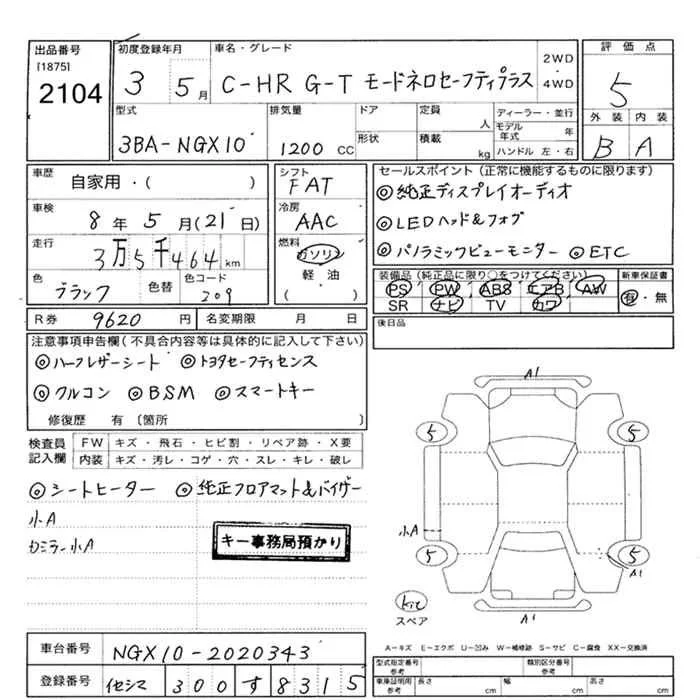 出品番号
[1875]
2104
初度登録年月
3 5月
車名・グレード
C-HR G-T モードネロセーフティプラス
2WD
・
4WD
評価点
5
外装 内装
B A
型式
3BA-NGX10
排気量
1200 CC
ドア
形状
定員
人
積載
kg
ディーラー・並行
モデル年式 年
ハンドル 左・右
車歴
自家用・( )
車検
8年 5月(21日)
走行
3万5千464km
色
ブラック
色替
色コード
209
シフト
FAT
冷房
AAC
燃料
ガソリン
軽・油
( )
セールスポイント(正常に機能するものに限ります)
◎純正ディスプレイオーディオ
◎LEDヘッド&フォグ
◎パノラミックビューモニター ◎ETC
装備品(純正品に限り○をつけてください)
PS PW ABS エアB AW
SR ナビ TV カワ
新車保証書
有・無
後日品
R券 9620円
名変期限 月 日
注意事項申告欄(不具合内容等は具体的に記入して下さい)
◎ハーフレザーシート ◎トヨタセーフティセンス
◎クルコン ◎BSM ◎スマートキー
修復歴 有〔箇所 〕
検査員記入欄
FW キズ・飛石・ヒビ割・リペア跡・X要
内装 キズ・汚レ・コゲ・穴・スレ・キレ・破レ
◎シートヒーター ◎純正フロアマット&バイザー
小A
カミラー小A
キー事務局預かり
A1
5 5
小A
5 5
A1
スペア
A1
A−キズ E−エクボ U−凹み W−補修跡 S−サビ C−腐食 XX−交換済
車台番号
NGX10-2020343
登録番号
300 す 8315
型式指定番号
参考
類別区分番号
参考
車庫証明用
参考
長さ cm
幅 cm
高さ cm